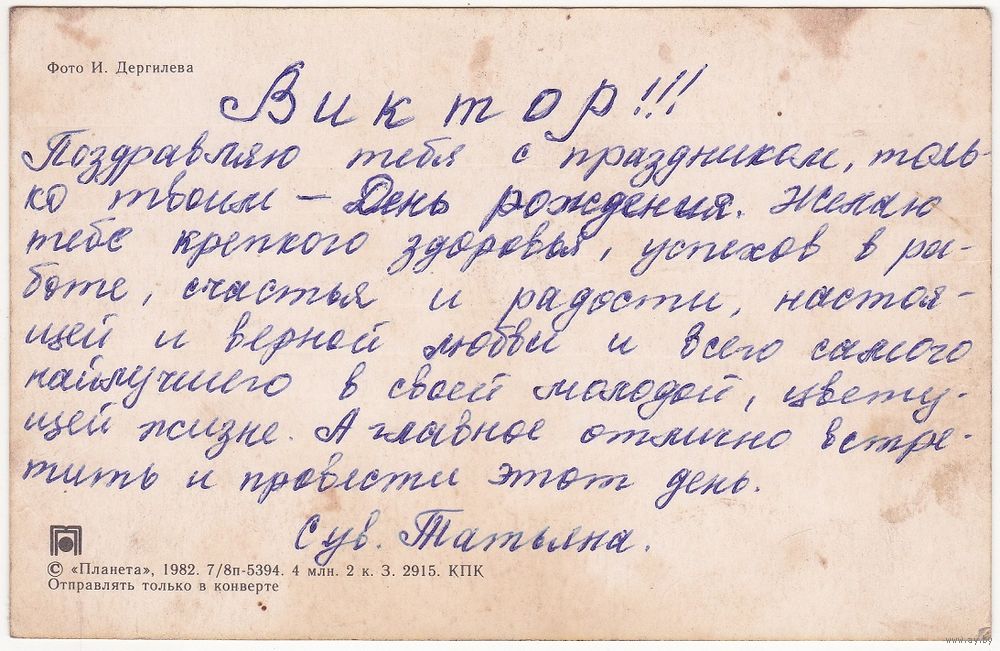 Фото И. Дергилева
Виктор!!!
Поздравляю тебя с праздником, толь-
ко твоим — День рождения. Желаю
тебе крепкого здоровья, успехов в ра-
боте, счастья и радости, настоя-
щей и верной любви и всего самого
наилучшего в своей молодой, цвету-
щей жизне. А главное отлично встре-
тить и провести этот день.
С ув. Татьяна.
© «Планета», 1982. 7/8п-5394. 4 млн. 2 к. З. 2915. КПК
Отправлять только в конверте
www.ay.by